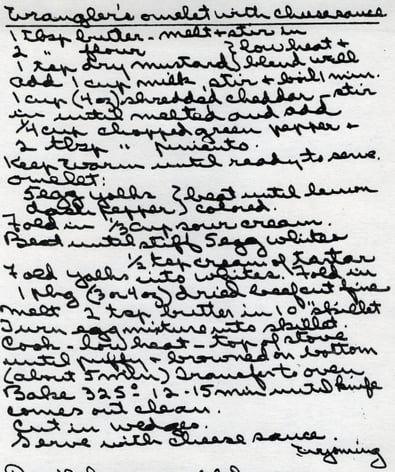 Wrangler's omelet with cheese sauce
1 tbsp butter - melt & stir in
2 " flour } low heat &
1 tsp dry mustard } blend well
add 1 cup milk, stir & boil 1 min.
1 cup (4 oz) shredded cheddar - stir
in until melted and add
1/4 cup chopped green pepper &
2 tbsp " pimiento.
Keep warm until ready to serve.
omelet:
5 egg yolks } beat until lemon
dash pepper } colored.
Fold in 1/3 cup sour cream.
Beat until stiff 5 egg whites
1/2 tsp cream of tartar
Fold yolks into whites. Fold in
1 pkg (3 or 4 oz) dried beef cut fine
melt 2 tsp. butter in 10" skillet
Turn egg mixture into skillet.
Cook - low heat - top of stove
until puffy & browned on bottom
(about 5 min) Transfer to oven
Bake 325° 12-15 min until knife
comes out clean.
Cut in wedges.
Serve with cheese sauce.
Wyoming